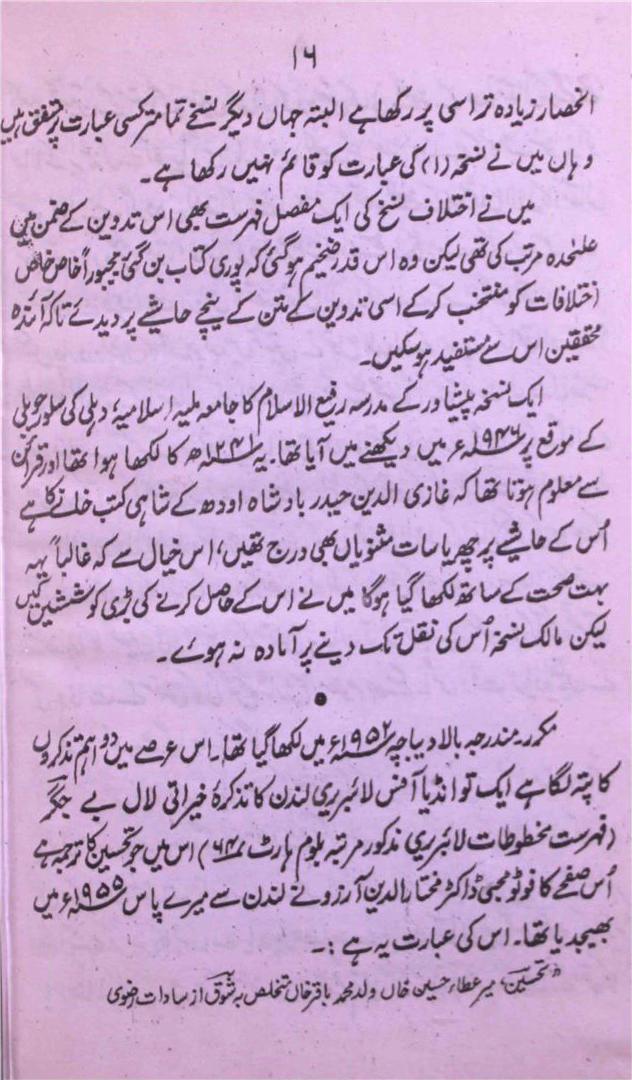 ۱۶
انحصار زیادہ تر اسی پر رکھا ہے البتہ جہاں دیگر نسخے تمامتر کسی عبارت پر متفق ہیں
وہاں میں نے نسخہ (۱) کی عبارت کو قائم نہیں رکھا ہے۔
میں نے اختلاف نسخ کی ایک مفصل فہرست بھی اس تدوین کے ضمن میں
علٰحدہ مرتب کی تھی لیکن وہ اس قدر ضخیم ہوگئی کہ پوری کتاب بن گئی مجبوراً خاص خاص
اختلافات کو منتخب کرکے اسی تدوین کے متن کے نیچے حاشیے پر دیدئے تاکہ آئندہ
محققین اس سے مستفید ہوسکیں۔
ایک نسخہ پیشاور کے مدرسہ رفیع الاسلام کا جامعہ ملیہ اسلامیہ، دہلی کی سلور جوبلی
کے موقع پر ۱۹۴۶ء میں دیکھنے میں آیا تھا۔ یہ ۱۲۴۱ھ کا لکھا ہوا تھا اور قرائن
سے معلوم ہوتا تھا کہ غازی الدین حیدر بادشاہ اودھ کے شاہی کتب خانے کا ہے
اُس کے حاشیے پر چھ یا سات مثنویاں بھی درج تھیں، اس خیال سے کہ غالباً یہ
بہت صحت کے ساتھ لکھا گیا ہوگا میں نے اس کے حاصل کرنے کی بڑی کوششیں کیں
لیکن مالک نسخہ اُس کی نقل تک دینے پر آمادہ نہ ہوئے۔
مکرر۔ مندرجہ بالا دیباچہ ۱۹۵۲ء میں لکھا گیا تھا۔ اس عرصے میں دو اہم تذکروں
کا پتہ لگا ہے ایک تو انڈیا آفس لائبریری لندن کا تذکرۂ خیراتی لال بے جگر
(فہرست مخطوطات لائبریری مذکور مرتبہ بلوم ہارٹ ۶۴) اس میں جو تحسین کا ترجمہ ہے
اُس صفحے کا فوٹو محبی ڈاکٹر مختار الدین آرزو نے لندن سے میرے پاس ۱۹۵۵ء میں
بھیجدیا تھا۔ اس کی عبارت یہ ہے :۔
"تحسین، میر عطاء حسین خاں ولد محمد باقر خاں متخلص بہ شوق از سادات رضوی